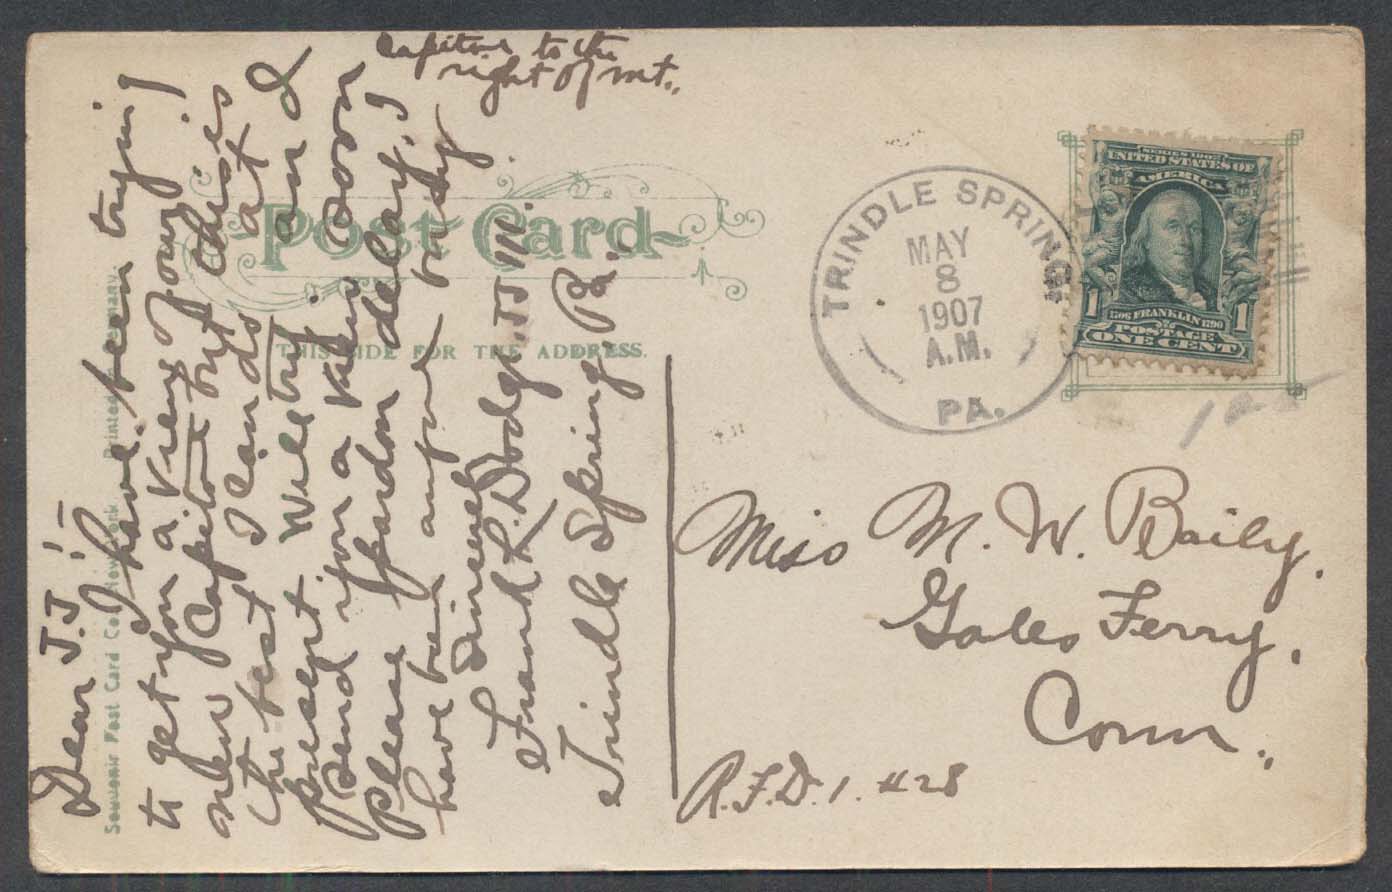 Capitol to the
right of mt.
Dear J.J.!—
I have been trying
to get you a view of our
new Capitol but this is
the best I can do at
present. Will try and
send you a view soon
Please pardon delay. I
have been awful busy
Sincerely
Frank R. Dodge, J.J.M.
Trindle Spring, Pa.
Souvenir Post Card Co. New York Printed Germany.
Post Card
THIS SIDE FOR THE ADDRESS.
TRINDLE SPRING
MAY
8
1907
A.M.
PA.
SERIES 1902
UNITED STATES OF
AMERICA
1706 FRANKLIN 1790
1 POSTAGE 1
ONE CENT
Miss M. W. Baily.
Gales Ferry,
Conn.
R.F.D. 1. #28